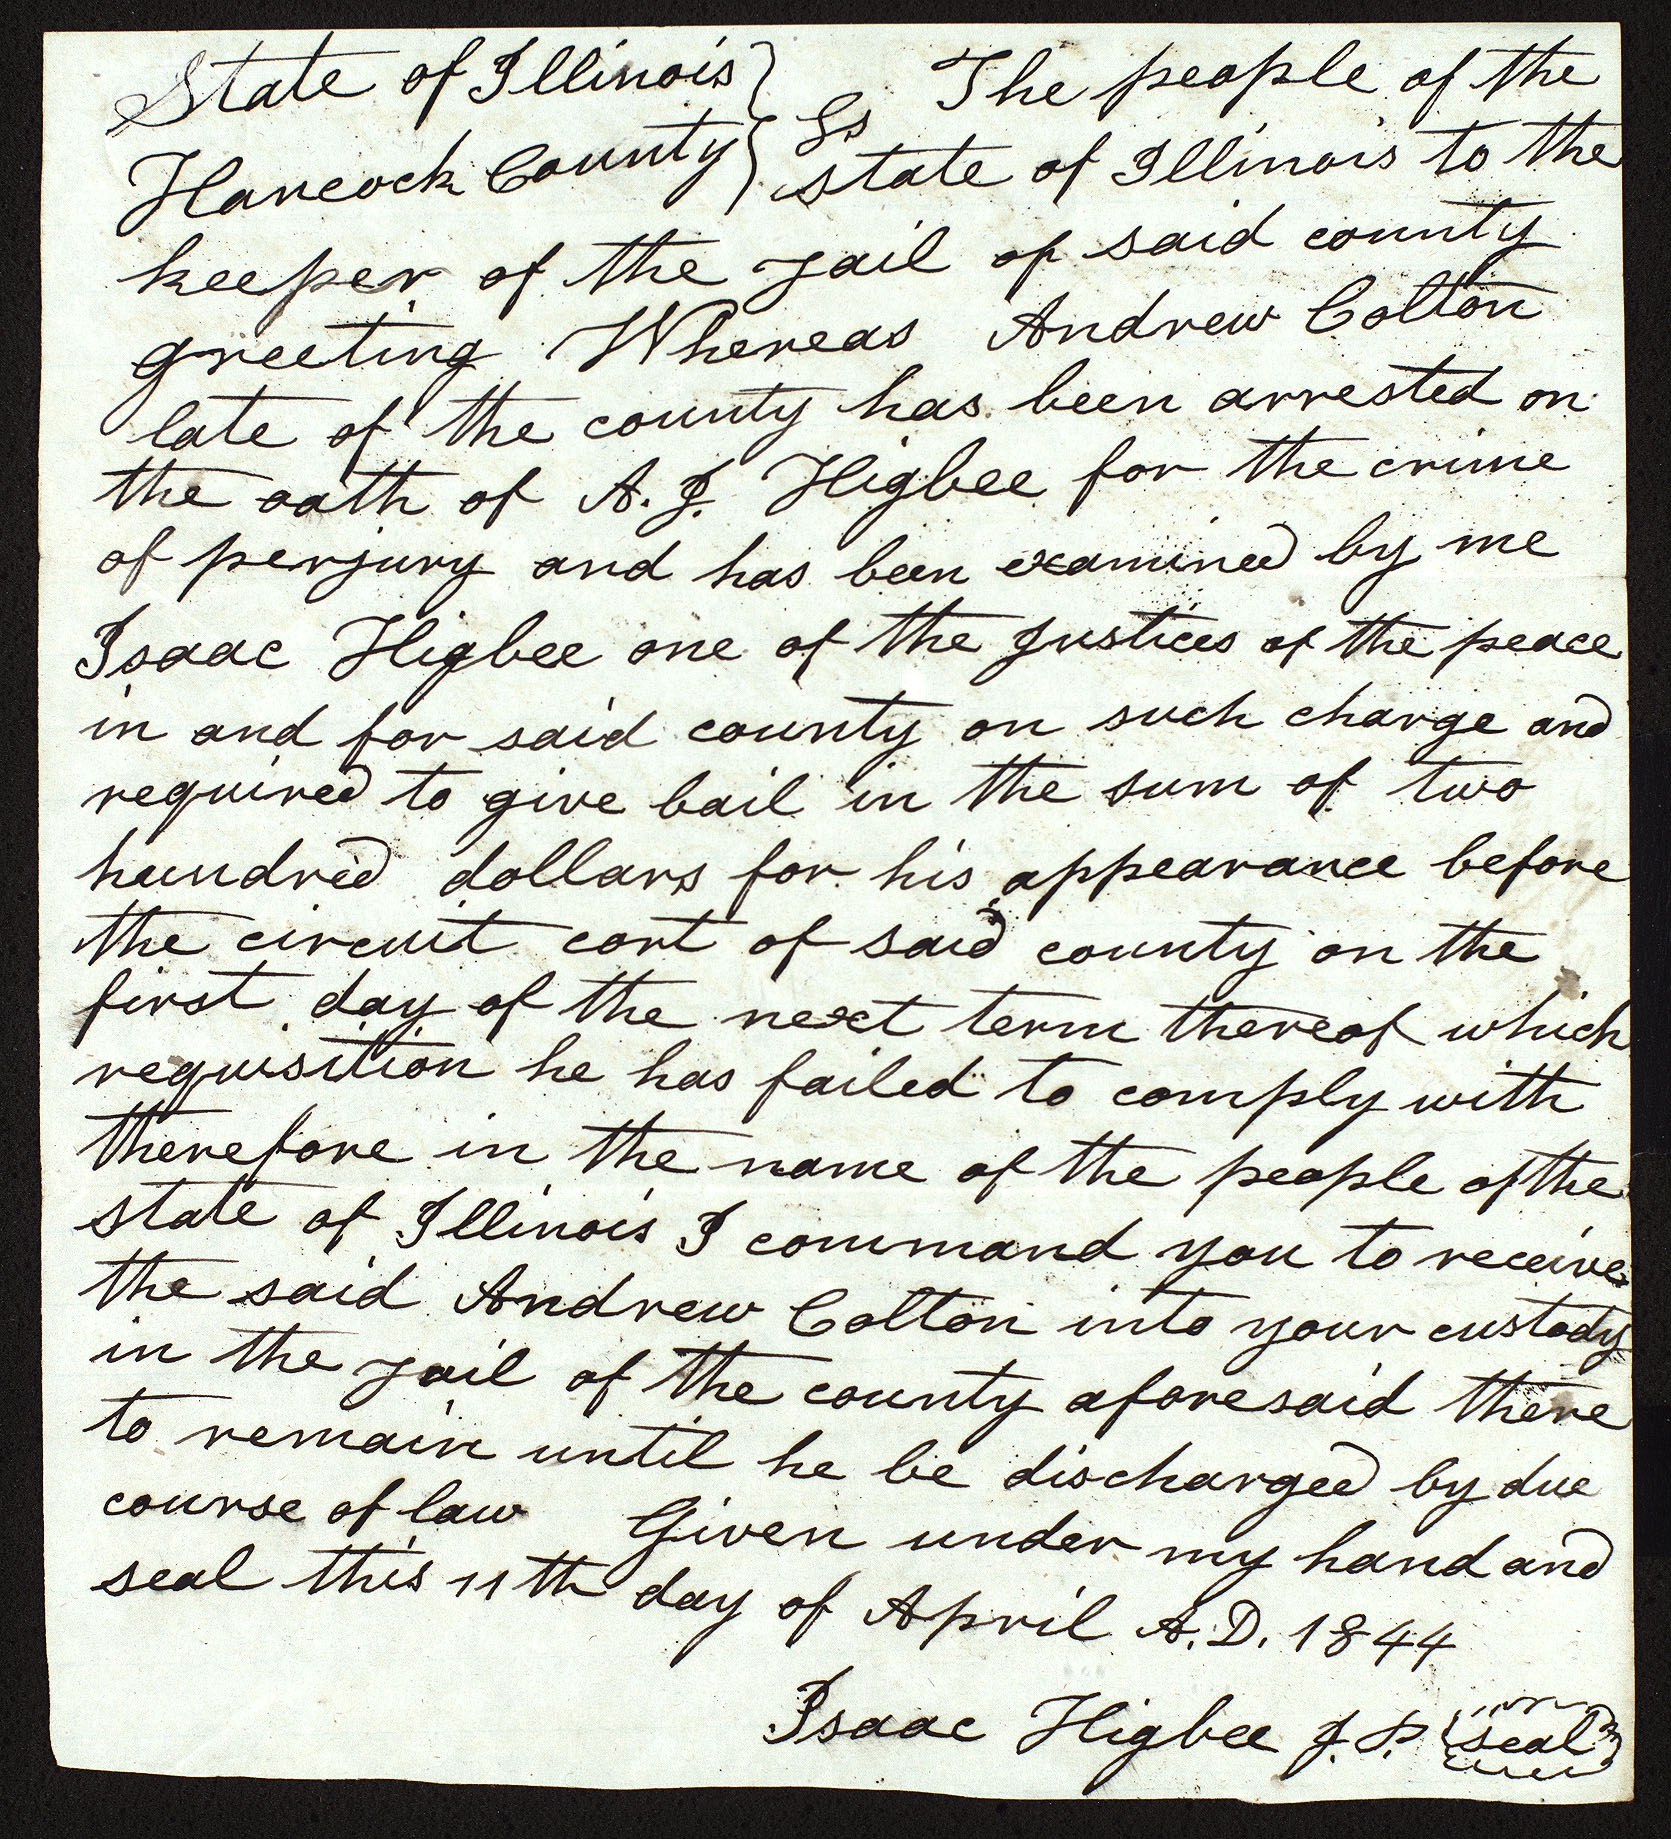 State of Illinois } The people of the
Hancock County } Ss state of Illinois to the
keeper of the jail of said county
greeting Whereas Andrew Colton
late of the county has been arrested on
the oath of A. J. Higbee for the crime
of perjury and has been examined by me
Isaac Higbee one of the Justices of the peace
in and for said county on such charge and
required to give bail in the sum of two
hundred dollars for his appearance before
the circuit cort of said county on the
first day of the next term thereof which
requisition he has failed to comply with
therefore in the name of the people of the
state of Illinois I command you to receive
the said Andrew Colton into your custody
in the jail of the county aforesaid there
to remain until he be discharged by due
course of law Given under my hand and
seal this 11th day of April A.D. 1844
Isaac Higbee J. P. {seal}